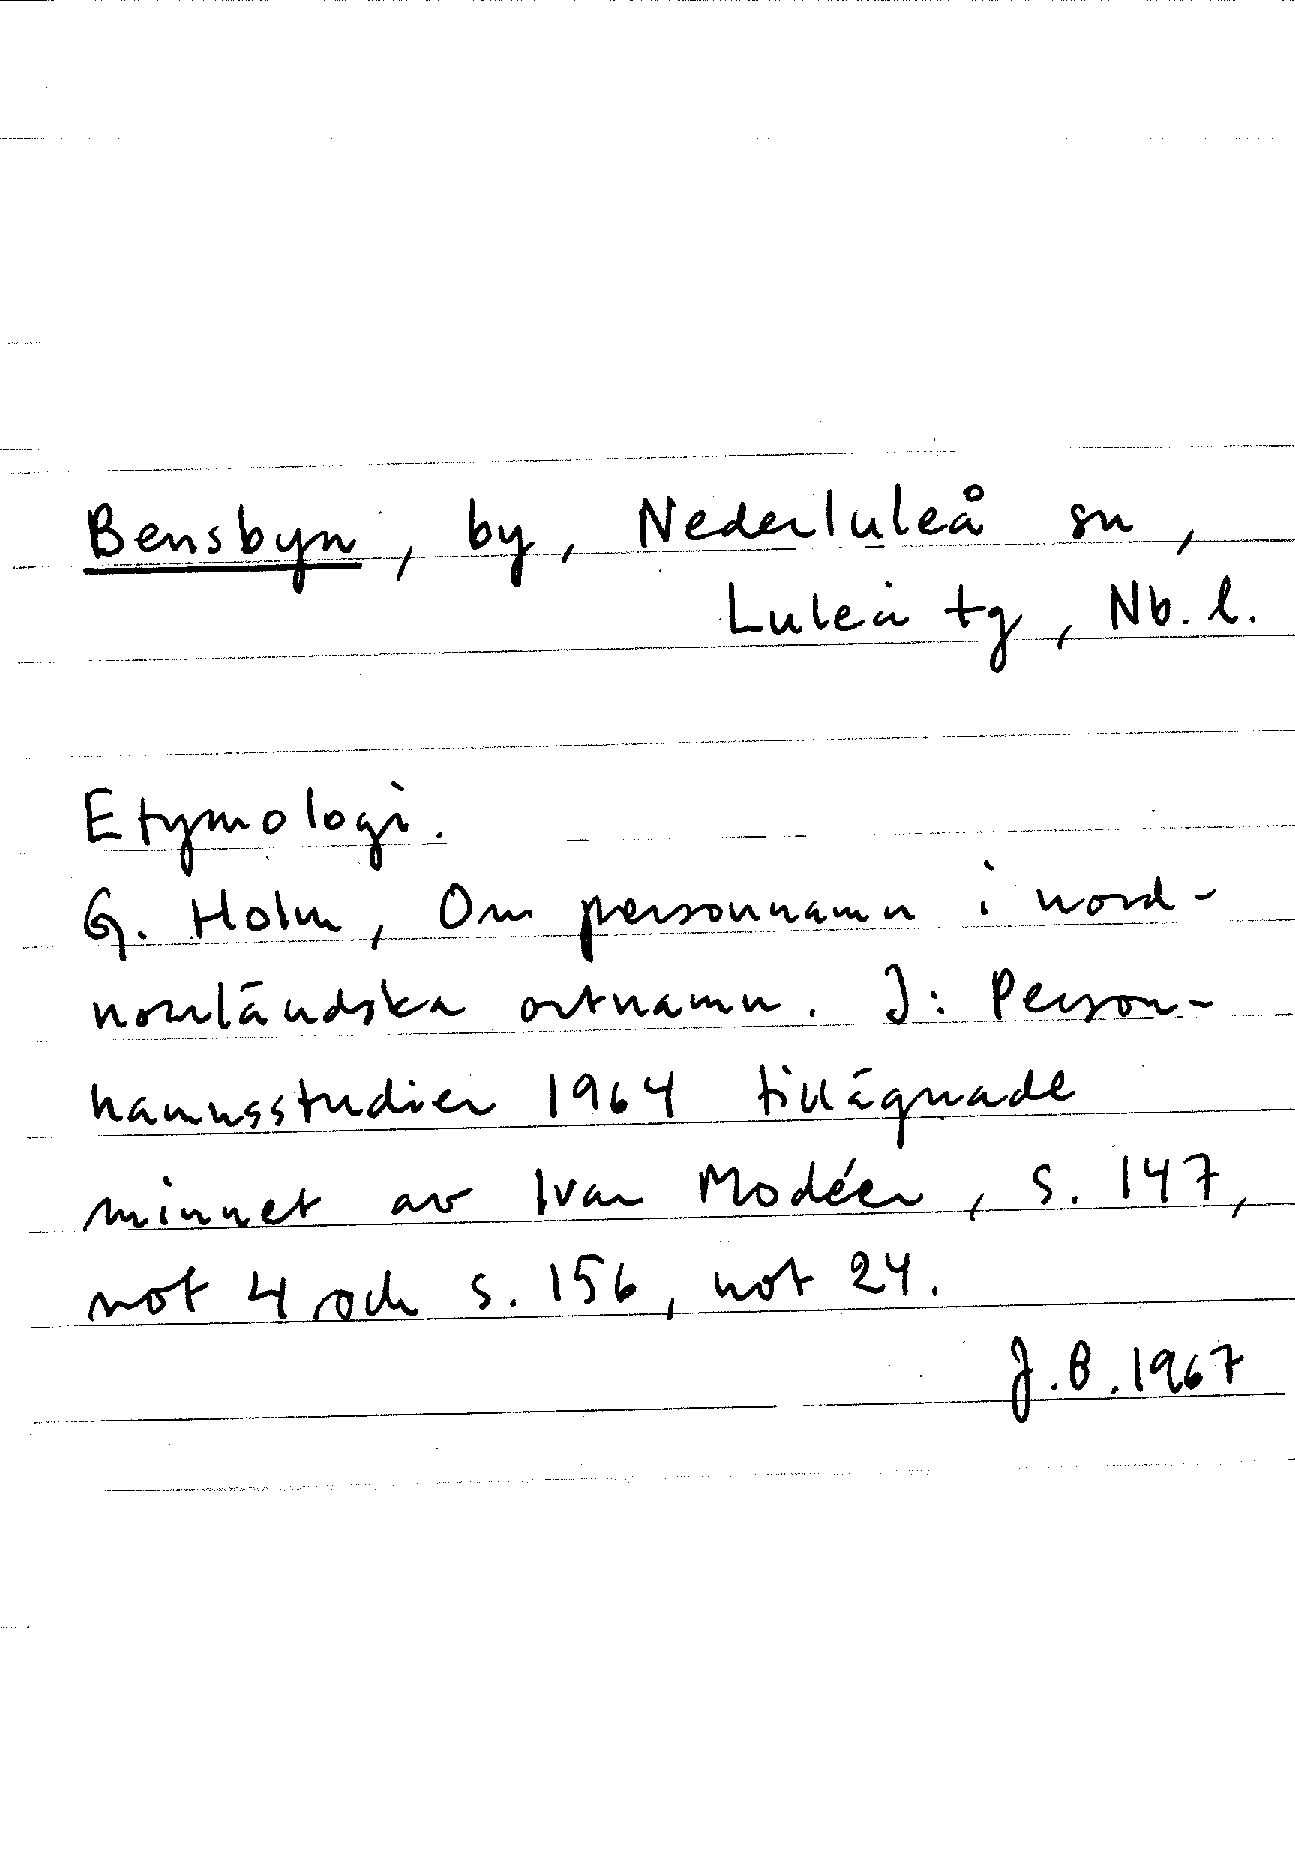 Bensbyn, by, Nederluleå sn,
Luleå tg, Nb. l.
Etymologi.
G. Holm, Om personnamn i nord-
norrländska ortnamn. I: Person-
namnsstudier 1964 tillägnade
minnet av Ivar Modéer, s. 147,
not 4 och s. 156, not 24.
J.B. 1967